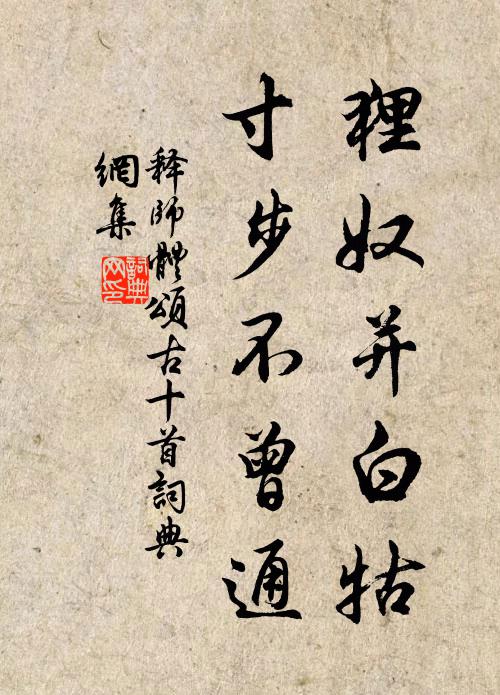 狸奴并白牯
寸步不曾通
释師體頌古十首詞典
網集
詞典
网印